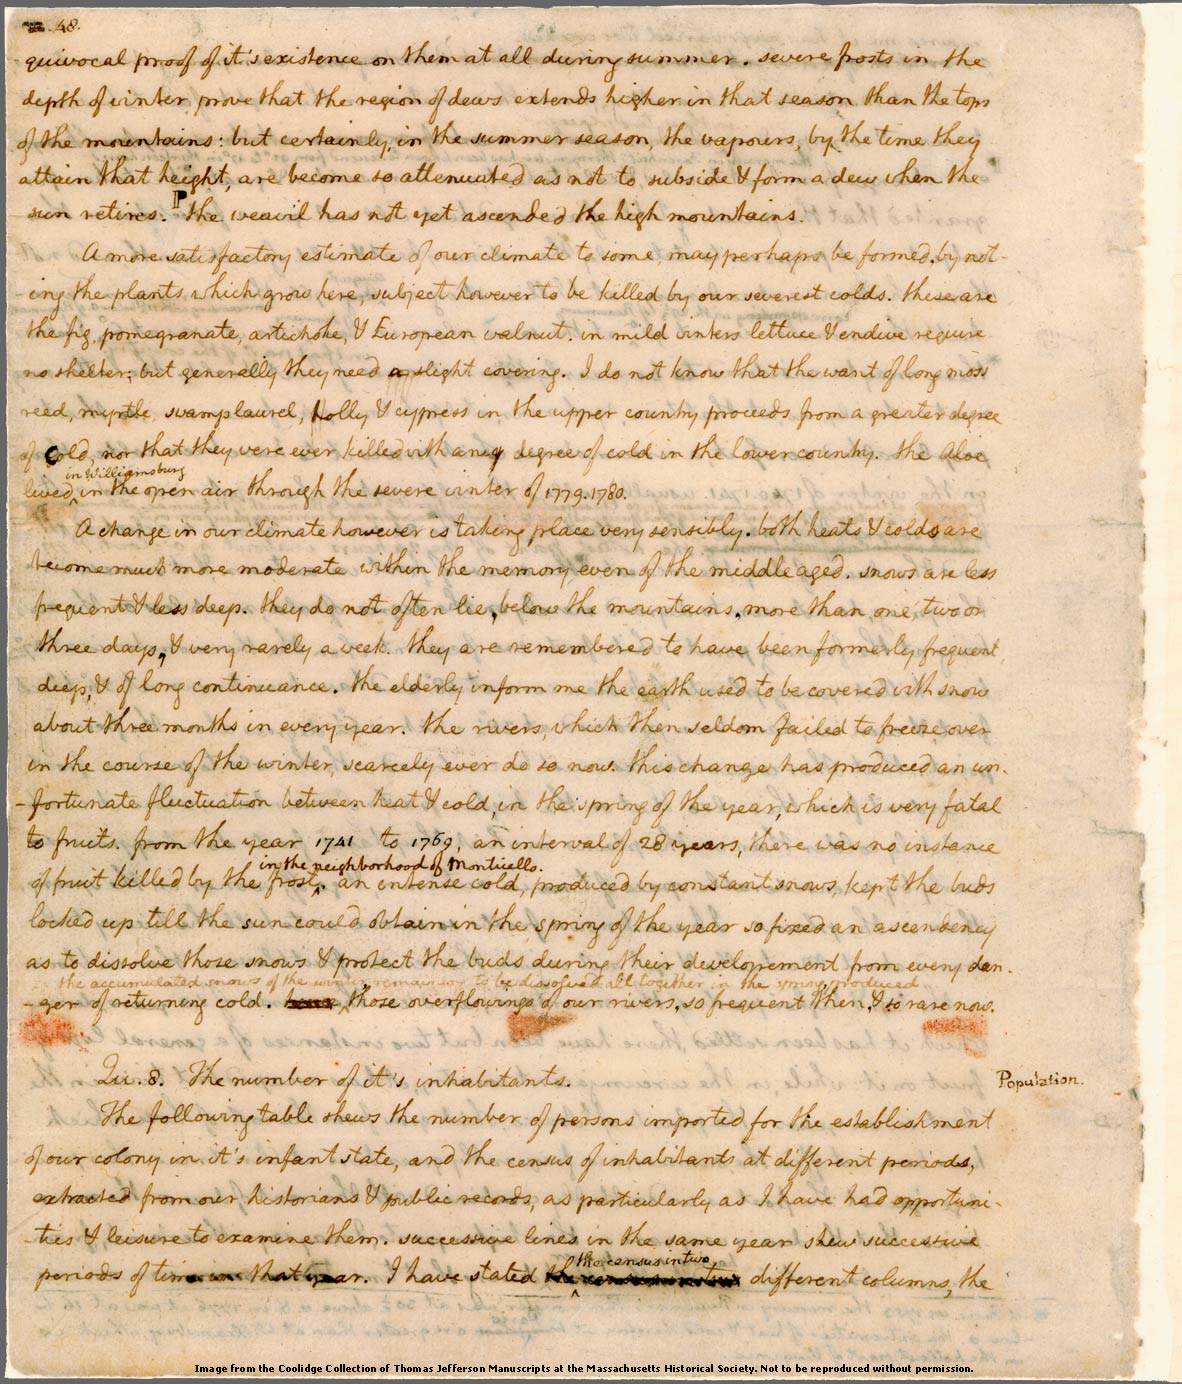 48.
quivocal proof of it's existence on them at all during summer. severe frosts in the
depth of winter prove that the region of dews extends higher in that season than the tops
of the mountains: but certainly, in the summer season, the vapours, by the time they
attain that height, are become so attenuated as not to subside & form a dew when the
sun retires. P the weavil has not yet ascended the high mountains.
A more satisfactory estimate of our climate to some, may perhaps be formed, by not-
-ing the plants which grow here, subject however to be killed by our severest colds. these are
the fig, pomegranate, artichoke, & European walnut. in mild winters lettuce & endive require
no shelter; but generally they need a slight covering. I do not know that the want of long moss
reed, myrtle, swamp laurel, holly & cypress in the upper country proceeds from a greater degree
of cold, nor that they were ever killed with any degree of cold in the lower country. the Aloe
in Williamsburg
lived in the open air through the severe winter of 1779.1780.
A change in our climate however is taking place very sensibly. both heats & colds are
become much more moderate within the memory even of the middle aged. snows are less
frequent & less deep. they do not often lie, below the mountains, more than one, two or
three days, & very rarely a week. they are remembered to have been formerly frequent,
deep, & of long continuance. the elderly inform me the earth used to be covered with snow
about three months in every year. the rivers, which then seldom failed to freeze over
in the course of the winter, scarcely ever do so now. this change has produced an un-
-fortunate fluctuation between heat & cold, in the spring of the year, which is very fatal
to fruits. from the year 1741 to 1769, an interval of 28 years, there was no instance
in the neighborhood of Monticello.
of fruit killed by the frost. an intense cold, produced by constant snows, kept the buds
locked up till the sun could obtain in the spring of the year so fixed an ascendency
as to dissolve those snows & protect the buds during their developement from every dan-
the accumulated snows of the winter remaining to be dissolved all together in the spring, produced
-ger of returning cold. those overflowings of our rivers, so frequent then, & so rare now.
Qu. 8. The number of it's inhabitants.
Population.
The following table shews the number of persons imported for the establishment
of our colony in it's infant state, and the census of inhabitants at different periods,
extracted from our historians & public records, as particularly as I have had opportuni-
-ties & leisure to examine them. successive lines in the same year shew successive
the census in two
periods of time in that year. I have stated different columns, the
Image from the Coolidge Collection of Thomas Jefferson Manuscripts at the Massachusetts Historical Society. Not to be reproduced without permission.